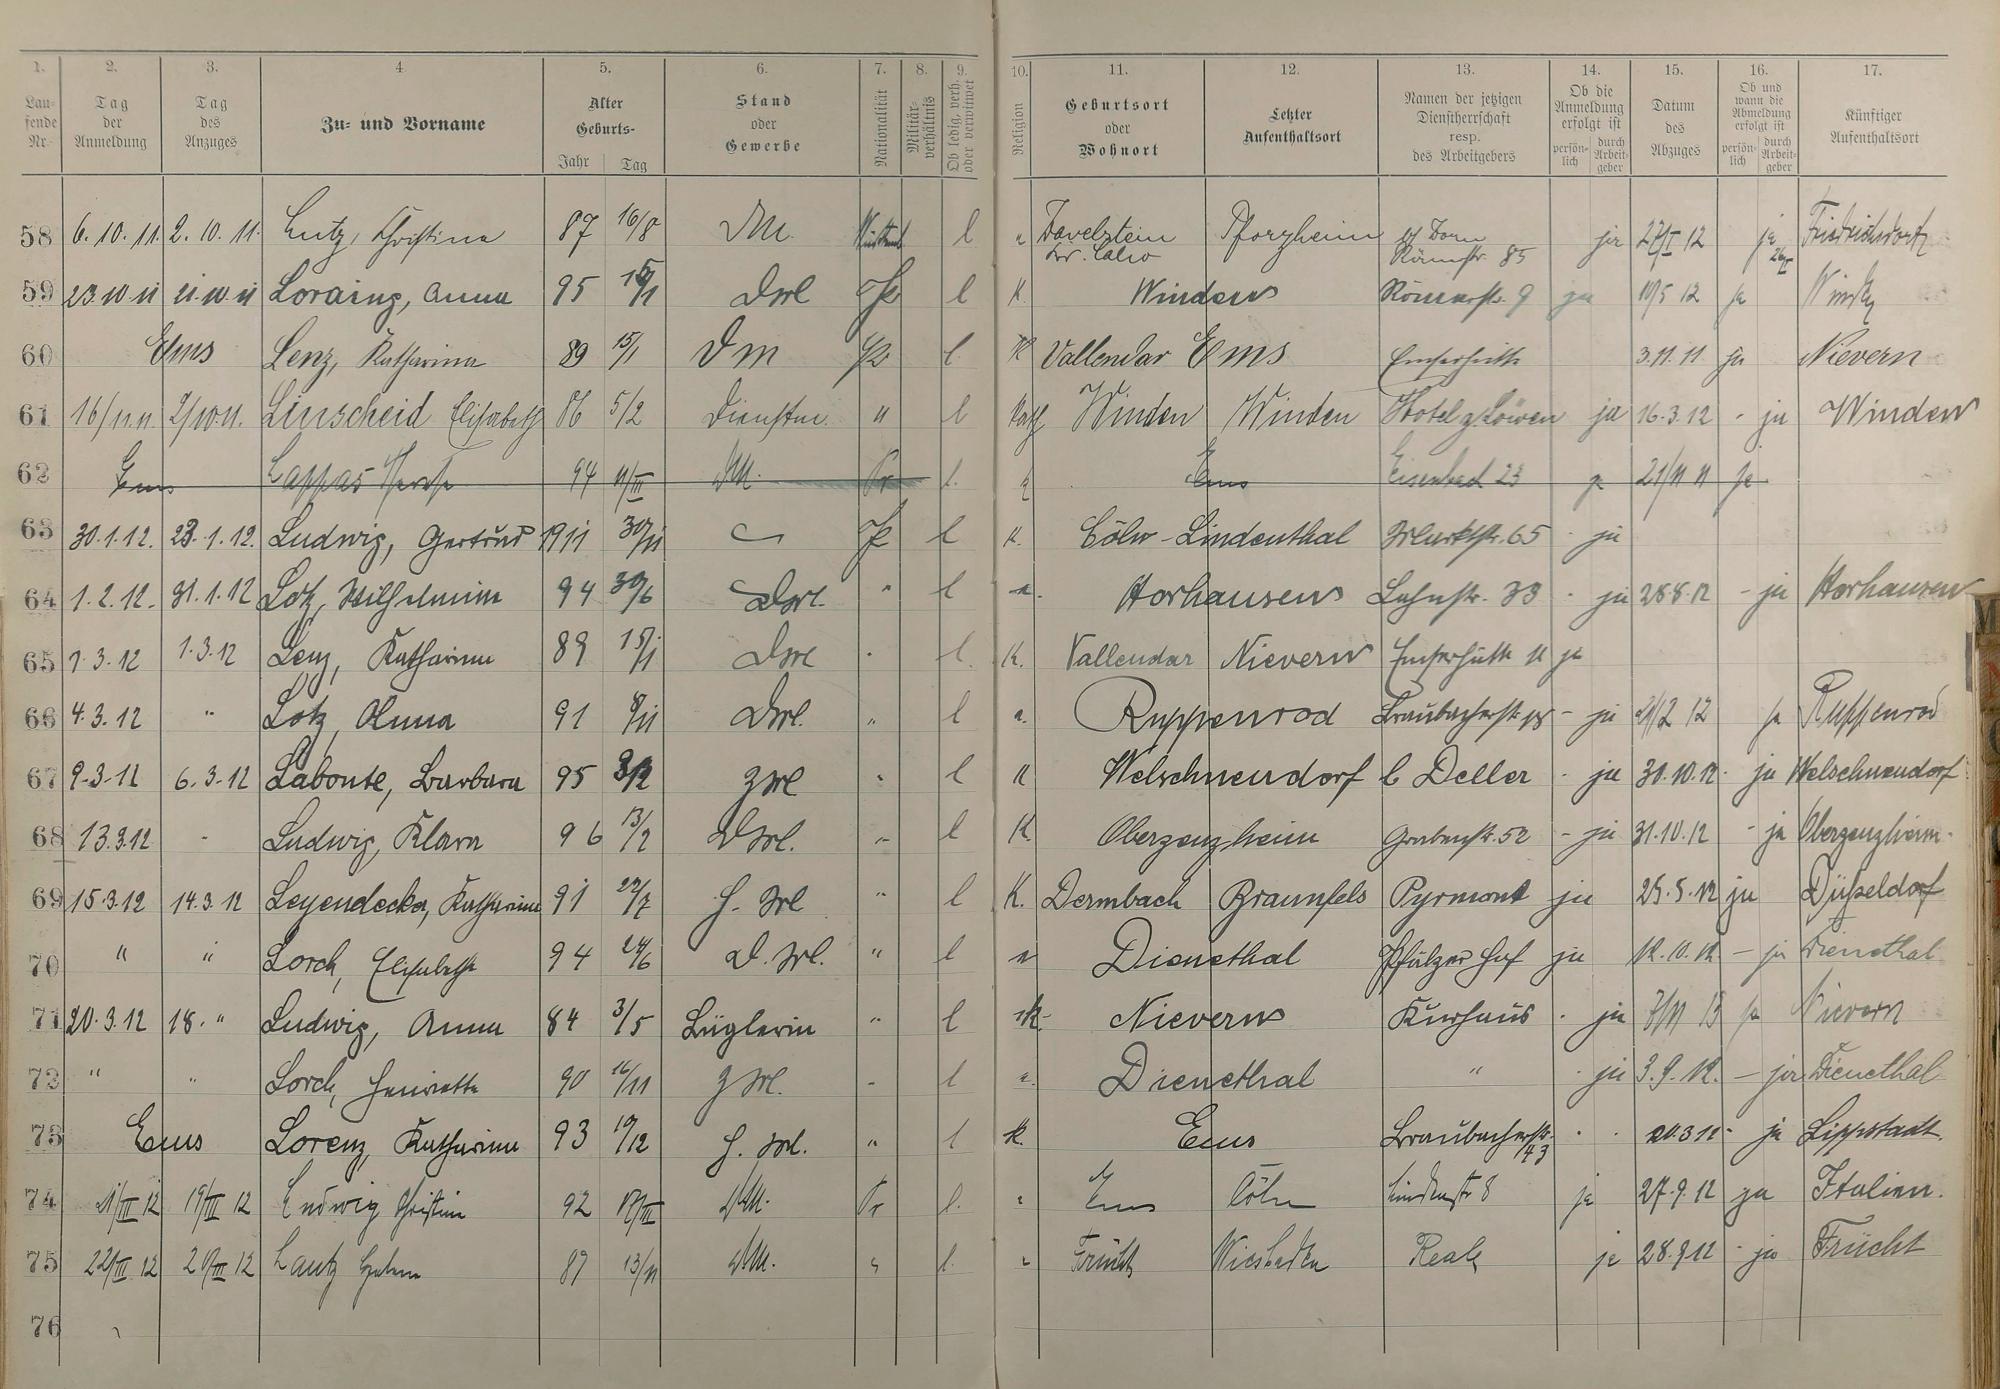 1. 2. 3. 4 5. 6. 7. 8. 9. 10. 11. 12. 13. 14. 15. 16. 17.
Laufende Nr. Tag der Anmeldung Tag des Anzuges Zu- und Vorname Alter Geburts- Jahr Tag Stand oder Gewerbe Nationalität Militärverhältnis Ob ledig, verh. oder verwitwet Religion Geburtsort oder Wohnort Letzter Aufenthaltsort Namen der jetzigen Dienstherrschaft resp. des Arbeitgebers Ob die Anmeldung erfolgt ist persönlich durch Arbeitgeber Datum des Abzuges Ob und wann die Abmeldung erfolgt ist persönlich durch Arbeitgeber Künftiger Aufenthaltsort
58 6.10.11. 2.10.11. Lutz, Christina 87 16/8 DM. l Pforzheim 85 ja 12 ja Friedrichsdorf
59 23.10.11 21.10.11 Loraing, Anna 95 l K. Winden Römerstr. 9 ja 10/5 12 ja
60 Ems Lenz, Katharina 89 15/1 DM l K Vallendar Ems Emserhütte 3.11.11 ja Nievern
61 Linscheid Elisabeth 86 5/2 Dienstm. " l Kath Winden Winden Hotel z Löwen ja 16.3.12 - ja Winden
62 Ems Lappas 94 11/III DM. Pr l. Ems Eisenbad 23 ja 21/11 11 ja
63 30.1.12. 28.1.12. Ludwig, Gertrud 1911 l K. Cöln-Lindenthal Marktstr. 65 - ja
64 1.2.12. 31.1.12 Lotz, Wilhelmine 94 30/6 DM. " l Horhausen Lahnstr. 33 - ja 28.8.12 - ja Horhausen
65 1.3.12 1.3.12 Lenz, Katharina 89 15/1 DM l. K. Vallendar Nievern Emserhütte 11 ja
66 4.3.12 " Lotz, Anna 91 8/11 DM. " l Ruppenrod Braubacherstr. - ja ja Ruppenrod
67 9.3.12 6.3.12 Labonte, Barbara 95 l K Welschneudorf b Deller - ja 30.10.12. ja Welschneudorf
68 13.3.12 - Ludwig, Klara 96 13/2 DM. " l K. Oberzeuzheim Grabenstr. 52 - ja 31.10.12 - ja Oberzeuzheim.
69 15.3.12 14.3.12 Leyendecker, Katharina 91 H. M " l K. Dermbach Braunfels Pyrmont ja 25.5.12 ja Düsseldorf
70 " " Lorch, Elisabeth 94 24/6 D. M. " l Dienethal Pfälzer Hof ja 12.10.12 - ja Dienethal
71 20.3.12 18. " Ludwig, Anna 84 3/5 Büglerin " l K Nievern Kurhaus - ja ja Nievern
72 " " Lorch, Henriette 90 16/11 l Dienethal " - ja 3.9.12. - ja Dienethal
73 Ems Lorenz, Katharina 93 19/12 H. M. " l K. Ems Braubacherstr. 43 - - ja Lippstadt.
74 21/III 12 19/III 12 Ludwig Christine 92 DM. Pr l. Ems Cöln Lindenstr 8 ja 27.9.12 ja Italien.
75 22/III 12 20/III 12 Lautz 13/11 DM. l. Frücht Wiesbaden ja 28.9.12 - ja Frücht
76